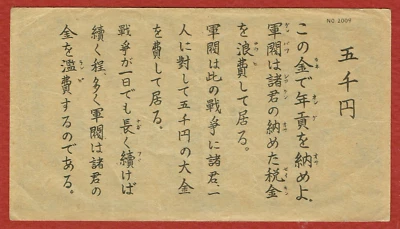 NO 2009
五千円
この金で年貢を納めよ。
軍閥は諸君の納めた税金
を浪費して居る。
軍閥は此の戦争に諸君、一
人に対して五千円の大金
を費して居る。
戦爭が一日でも長く續けば
續く程、多く軍閥は諸君の
金を濫費するのである。